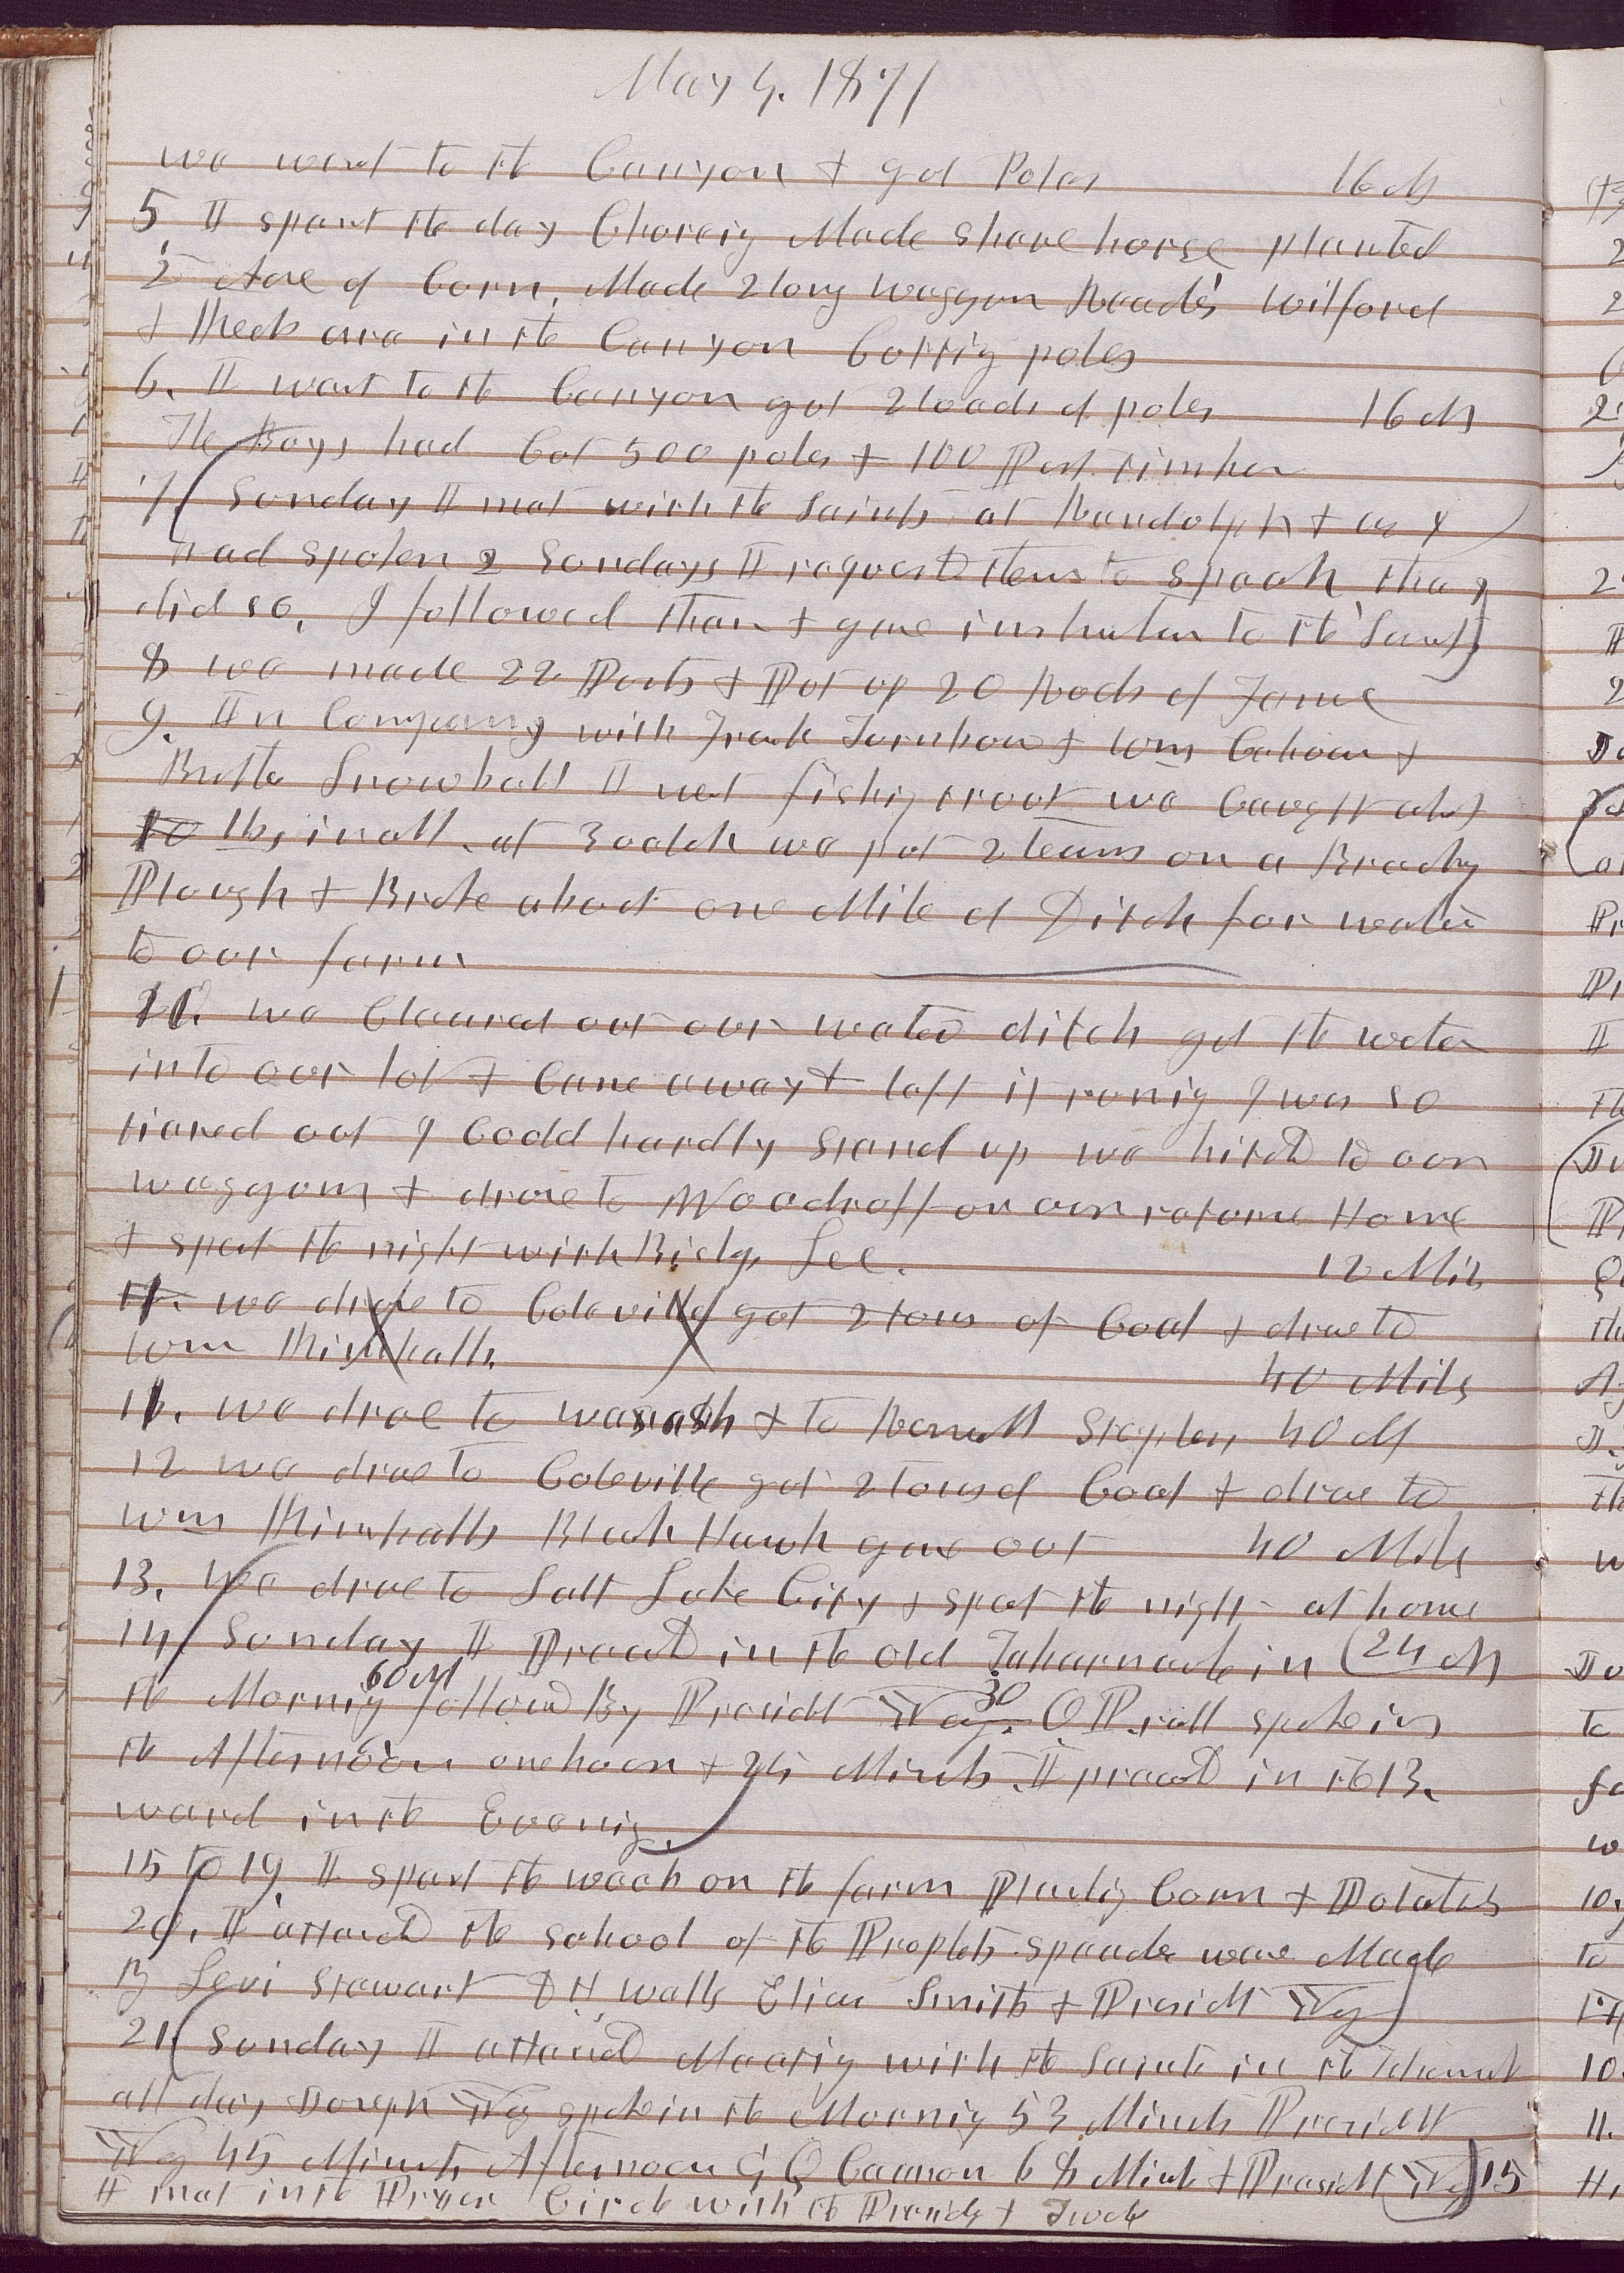 May 4. 1871
we went to the Canyon + got Poles 16 M
5 I spent the day Choreig Made shave horse planted
1/2 Acre of Corn. Made 2 long waggon Reach's Wilford
+ are in the Canyon Cottig poles
6. I went to the Canyon got 2 loads of poles 16 M
The Boys had Cot 500 poles + 100 Post timber
7 Sonday I met with the Saints at Randolph + as I
had spoken 2 Sondays I requestd them to speak they
did so. I followed them + gave instruction to the Saints
8 we made 22 Posts + Pot up 20 Rods of Fence
9. In Company with Frank Wm +
Snowball I went fishing trout we Caught about
10 lbs, in all. at 3 oclok we put 2 teams on a Breaking
Plough + Broke about one Mile of Ditch for water
to our farm
10. we Cleared out our water ditch got the water
into our lot + Came away + left it runig I was so
tiared out I Coold hardly stand up we hitchd to our
waggons + drove to Woodroff on our retorne Home
+ spent the night with Bishop Lee. 12 Mils
11. we drove to Coleville got 2 tons of Coal + drove to
Wm Kimballs. 40 Mils
11. we drove to wasach + to Stephen 40 M
12 we drove to Coleville got 2 tons of Coal + drove to
Wm Kimballs Black Hawk gave out 40 Mils
13. We drove to Salt Lake City + spent the night at home
14 Sonday I Preachd in the old Tabernacle in 24 M
the Mornig 60 M followd By Presidet Yg. 30 O Pratt spoke in
the Afternoon one hour + 25 Minuts. I preachd in the 13.
ward in the Evenig.
15 to 19 I spent the week on the farm Plantig Corn + Potatoes
20. I attend the school of the Prophets. speaches were Made
By Levi Stewart D H Wells Elias Smith + Presidt Yg
21 Sonday I attend Meetig with the Saints in the
all day Joseph Yg spoke in the Mornig 53 Minuts President
Yg 45 Minuts Afternoon G Q Cannon 68 Minuts + Presidet Yg 15
I met in the Prayer Circle with the Presidency + Twelve